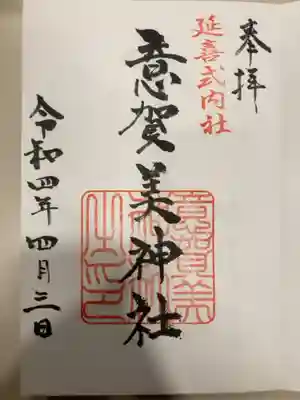 奉拝
延喜式内社
意賀美神社
意賀美神社之印
令和四年四月三日